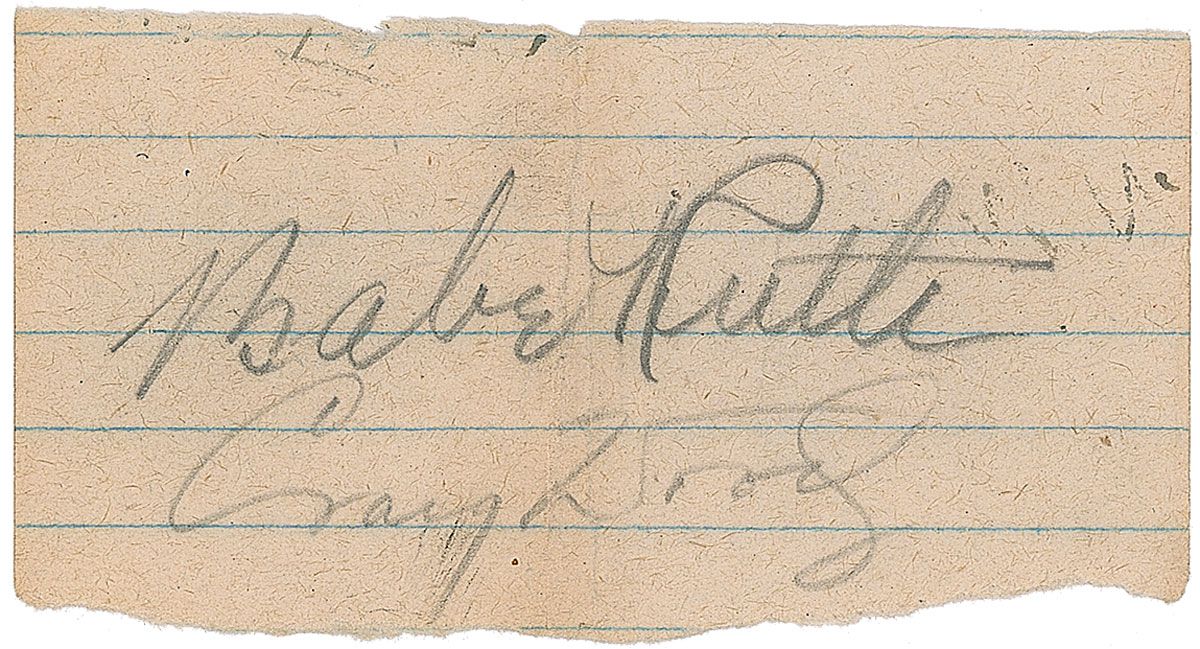 Babe Ruth
Craig Wood